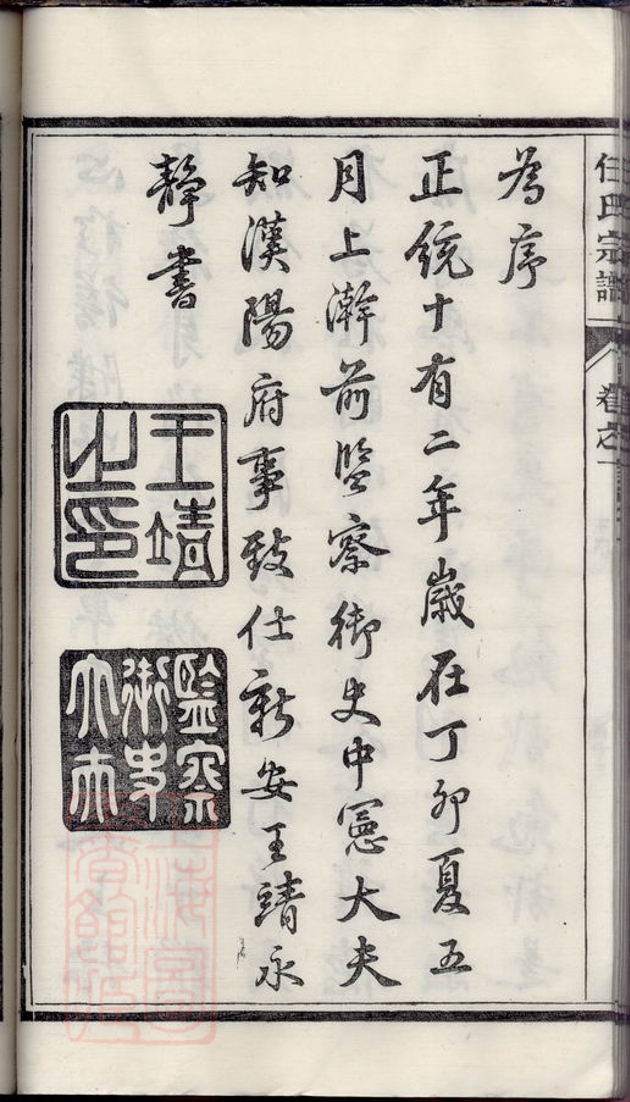 任氏宗譜
卷之一
為序
正統十有二年歲在丁卯夏五
月上澣前監察御史中憲大夫
知漢陽府事致仕新安王靖永
靜書
王靖之印
監察御史大夫